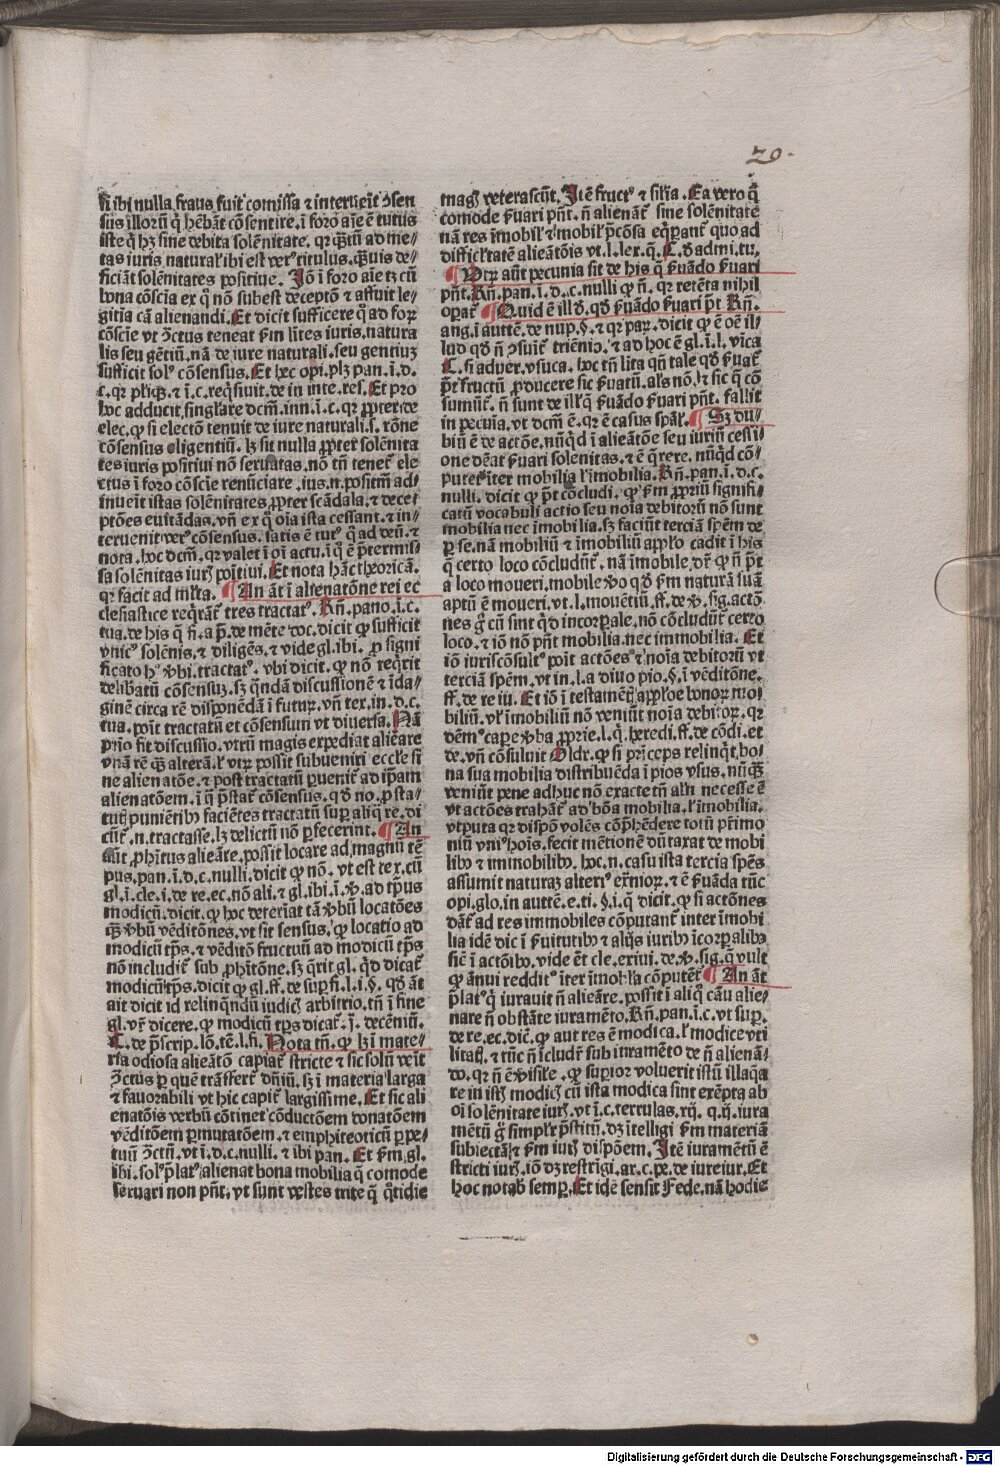 20.
si ibi nulla fraus fuit cōmissa ⁊ interueit ↄ̄sen
sus illorū q̄ hēbāt cōsentire. ī foro aīe ē tutus
iste q̄ hꝫ sine debita solēnitate. qr q̄ꝫtū ad me-
tas iuris natural' ibi est ver⁹ titulus. q̄uis de-
ficiāt solēnitates positiue. Iō ī foro aīe tꝫ cū
bona cōscia ex q̄ nō subest deceptō ⁊ affuit le-
gitia cā alienandi. Et dicit sufficere q̄ ad for̄
cōscie vt ↄ̄ctus teneat ẜm līites iuris. natura
lis seu gētiū. nā de iure naturali. seu gentiuꝫ
sufficit sol⁹ cōsensus. Et hec opi. plꝫ pan. ī. d.
c. qr pl̄iqꝫ. ⁊ ī. c. req̄siuit. de in inte. res. Et pro
hoc adducit singl'are dcm̄. inn. ī. c. qr ꝓpter. de
elec. ꝙ si electō tenuit de iure naturali. s. rōne
cōsensus eligentiū. lꝫ sit nulla ꝓpter solēnita
tes iuris positiui nō seruatas. nō tn̄ tenet ele
ctus ī foro cōscie renūciare. ius. n. positm̄ ad-
inueīt istas solēnitates. ꝓpter scādala. ⁊ dece-
ptōes euitādas. vn̄ ex q̄ oīa ista cessant. ⁊ in-
teruenit ver⁹ cōsensus. satis ē tut⁹ q̄ ad deū. ⁊
nota. hoc dcm̄. qr valet ī oī actu. ī q̄ ē p̄termis-
sa solēnitas iurꝭ poītiui. Et nota hāc theoricā.
qr facit ad ml'ta. ¶ An āt ī alienatōne rei ec
clesiastice req̄rāt tres tractat⁹. Rn̄. pano. ī. c.
tua. de his q̄ fi. a p̄. de mēte doc. dicit ꝙ sufficit
vnic⁹ solēnis. ⁊ diligēs. ⁊ vide gl. ibi. ꝓ signi
ficato h⁹ v̄bi. tractat⁹. vbi dicit. ꝙ nō req̄rit
delibatū cōsensuꝫ. sꝫ q̄ndā discussionē ⁊ īda-
ginē circa rē dispōnēdā ī futur̄. vn̄ tex. in. d. c.
tua. poīt tractatū et cōsensum vt diuersa. Nā
prīo fit discussio. vtrū magis expediat aliēare
vnā rē q̄ꝫ alterā. l' vtꝝ possit subueniri ecclesie si
ne alienatōe. ⁊ post tractatū ꝑuenit ad ip̄am
alienatōem. ī q̄ p̄stat cōsensus. qd nō. ꝓ sta-
tutꝭ puniētib⁹ faciētes tractatū suꝑ aliq̄ re. di
cūt. n. tractasse. lꝫ delictū nō ꝑfecerint. ¶ An
aūt ꝓhītus alieāre. possit locare ad magnū tē
pus. pan. ī. d. c. nulli. dicit ꝙ nō. vt est tex. cū
gl. ī. cle. i. de re. ec. nō ali. ⁊ gl. ibi. ī. v̄. ad tp̄us
modicū. dicit. ꝙ hoc deteriat tā v̄bū locatōes
q̄ꝫ v̄bū vēditōnes. vt sit sensus. ꝙ locatio ad
modicū tp̄s. ⁊ vēditō fructuū ad modicū tp̄s
nō includit sub ꝓhītōne. sꝫ q̄rit gl. q̄d dicat
modicū tp̄s. dicit ꝙ gl. ff. de suꝑfi. l. i. §. qd āt
ait dicit id relinq̄ndū iudicꝭ arbitrio. tn̄ ī fine
gl. vr̄ dicere. ꝙ modicū tp̄s dicat. ī. decēniū.
C. de p̄scrip. lō. tē. l. fi. Nota tn̄. ꝙ lꝫ ī mate-
ria odiosa alieātō capiat stricte ⁊ sic solū veīt
ↄ̄ctus ꝑ quē trāsfert dn̄iū. sꝫ ī materia larga
⁊ fauorabili vt hic capit largissime. Et sic ali
enatōis verbū cōtinet cōductōem donatōem
vēditōem ꝑmutatōem. ⁊ emphiteoticū ꝑpe-
tuū ↄ̄ctū. vt ī. d. c. nulli. ⁊ ibi pan. Et ẜm gl.
ibi. sol⁹ p̄lat⁹ alienat bona mobilia q̄ comode
seruari non pn̄t. vt sunt vestes trite q̄ q̄tidie
magꝭ veterascūt. Itē fruct⁹ ⁊ sil'ia. Ea vero q̄
comode ẜuari pn̄t. n̄ alienāt sine solēnitate
nā res īmobil' ⁊ mobil' p̄cōsa eq̄ꝑant quo ad
difficl'tatē alieātōis vt. l. lex. q̄. C. d̄ admi. tu.
¶ Vtꝝ aūt pecunia sit de his q̄ ẜuādo ẜuari
pn̄t. Rn̄. pan. ī. d. c. nulli ꝙ n̄. qr retēta nihil
oꝑat ¶ Quid ē ill'd. qd ẜuādo ẜuari p̄t Rn̄.
ang. ī auttē. de nup. §. ⁊ qr par̄. dicit ꝙ ē oē il-
lud qd n̄ ↄ̄suīt triēnio. ⁊ ad hoc ē gl. ī. l. vīca
C. si aduer. vsuca. hoc tn̄ līta qn̄ tale qd ẜuat
p̄t fructū ꝓducere sic ẜuatū. al's nō. ⁊ sic q̄ cō
sumūt. n̄ sunt de ill' q̄ ẜuādo ẜuari pn̄t. fallit
in pecuīa. vt dcm̄ ē. qr ē casus sp̄al'. ¶ Sꝫ du-
biū ē de actōe. nūq̄d ī alieātōe seu iuriū cessī-
one dēat ẜuari solēnitas. ⁊ ē q̄rere. nūq̄d cō-
putet iter mobilia l' īmobilia. Rn̄. pan. ī. d. c.
nulli. dicit ꝙ p̄t cōcludi. ꝙ ẜm ꝓpriū signifi-
catū vocabuli actio seu noīa debitorū nō sunt
mobilia nec īmobilia. sꝫ faciūt terciā sp̄em de
ꝑ se. nā mobiliū ⁊ īmobiliū appl'o cadit ī his
q̄ certo loco cōcludūt. nā īmobile. dr̄ ꝙ n̄ p̄t
a loco moueri. mobile v̄o qd ẜm naturā suā
aptū ē moueri. vt. l. mouētiū. ff. de v̄. sig. actō
nes g̊ cū sint q̄d incorꝑale. nō cōcludūt certo
loco. ⁊ iō nō pn̄t mobilia. nec immobilia. Et
iō iuriscōsult⁹ poīt actōes ⁊ noīa debitorū vt
terciā sp̄em. vt in. l. a diuo pio. §. ī vēditōne.
ff. de re iu. Et iō ī testamētꝭ appl'oe bonor̄ mo
biliū. vl' īmobiliū nō veniūt noīa debitor̄. qr
dēm⁹ cape v̄ba ꝓprie. l. q̄. heredi. ff. de cōdi. et
de. vn̄ cōsuluit Oldr. ꝙ si prīceps relinq̄t. bo-
na sua mobilia distribuēda ī pios vsus. nūq̄ꝫ
veniūt pene adhuc nō exacte tn̄ al'n necesse ē
vt actōes trahāt ad bōa mobilia. l' īmobilia.
vtputa qr dispō volēs cōp̄hēdere totū pr̄imo
niū vni⁹ hoīs. fecit mētionē dūtaxat de mobi
lib⁹ ⁊ immobilib⁹. hoc. n. casu ista tercia sp̄es
assumit naturaꝫ alteri⁹ ex̄nior̄. ⁊ ē ẜuāda tūc
opi. glo. in auttē. e. ti. §. i. q̄ dicit. ꝙ si actōnes
dāt ad res immobiles cōputant inter īmobi
lia idē dic ī ẜuitutib⁹ ⁊ aliq̄s iurib⁹ īcorꝑalib⁹
sic ī actōib⁹. vide ēt cle. exiui. de. v̄. sig. q̄ vult
ꝙ ānui reddit⁹ īter īmob'la cōputēt ¶ An āt
p̄lat⁹ q̄ iurauit n̄ alieāre. possit ī aliq̄ cāu alie-
nare n̄ obstāte iuramēto. Rn̄. pan. ī. c. vt suꝑ.
de re. ec. dic̄. ꝙ aut res ē modica. l' modice vti
litatꝭ. ⁊ tūc n̄ īcludit sub iuramēto de n̄ alienā-
do. qr n̄ ē v̄isil'e. ꝙ suꝑior voluerit istū illaq̄a
re in istꝭ modicꝭ cū ista modica sint exēpta ab
oī solēnitate iurꝭ. vt ī. c. terrulas. xij. q. ij. iura
mētū g̊ simpl'r p̄stitū. dꝫ ītelligi ẜm materiā
subiectā. ⁊ ẜm iurꝭ dispōem. Itē iuramētū ē
stricti iurꝭ. iō dꝫ restrīgi. ar. c. pe. de iureiur. Et
hoc notab semꝑ. Et idē sensit Fede. nā hodie
Digitalisierung gefördert durch die Deutsche Forschungsgemeinschaft - DFG